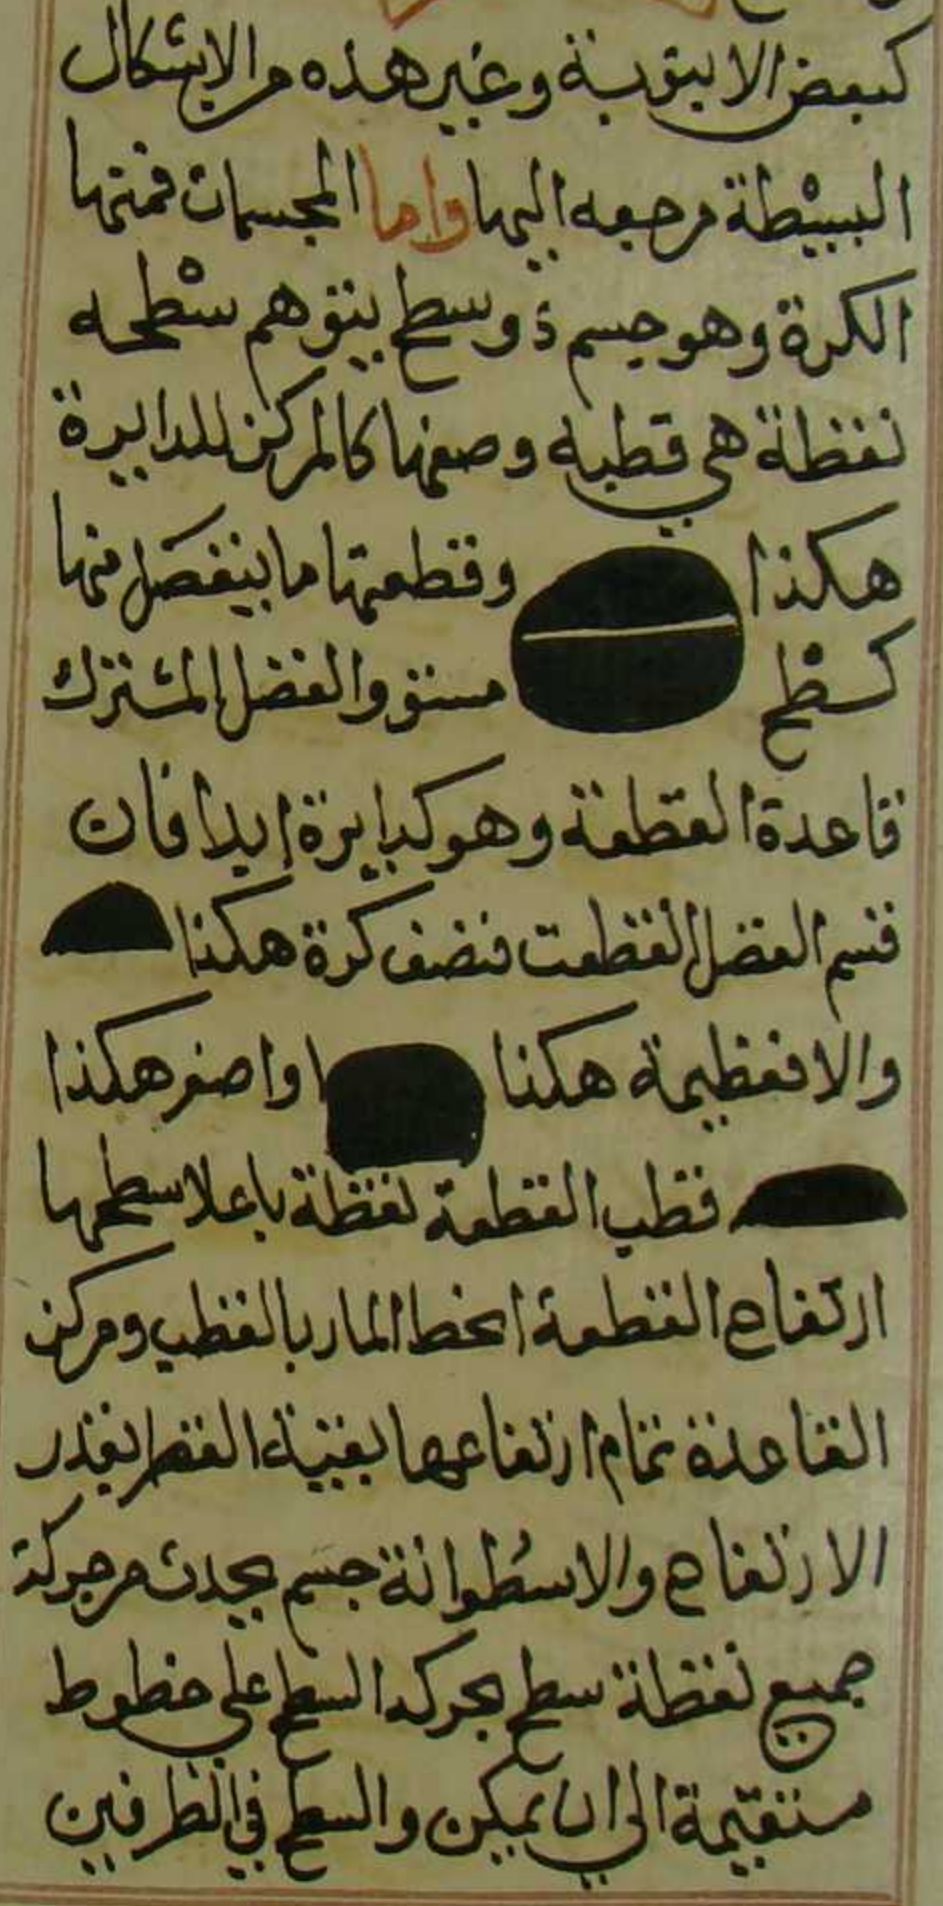 كبعض الابيوبية وغير هذه من الاشكال
البسيطة مرجعه اليها واما المجسمات فمنها
الكرة وهو جسم ذو سطح يتوهم سطحه
نقظة هي قطبه وصفها كالمركز للدايرة
هكذا وقطعتها ما ينفصل منها
كسطح مستو والفضل المشترك
قاعدة القطعة وهو كدايرة ابدا فان
قسم الفضل القظعت فنصف كرة هكذا
والا فعظيمة هكذا او اصغر هكذا
فقطب القطعة نقظة باعلا سطحها
ارتفاع القطعة الخط المار بالقظب ومركز
القاعدة تمام ارتفاعها بقية القطر بقدر
الارتفاع والاسطوانة جسم يحدث من حركة
جميع نقظة سطح بحركة السطح على خطوط
مستقيمة الى ان يمكن والسطح في الطرفين